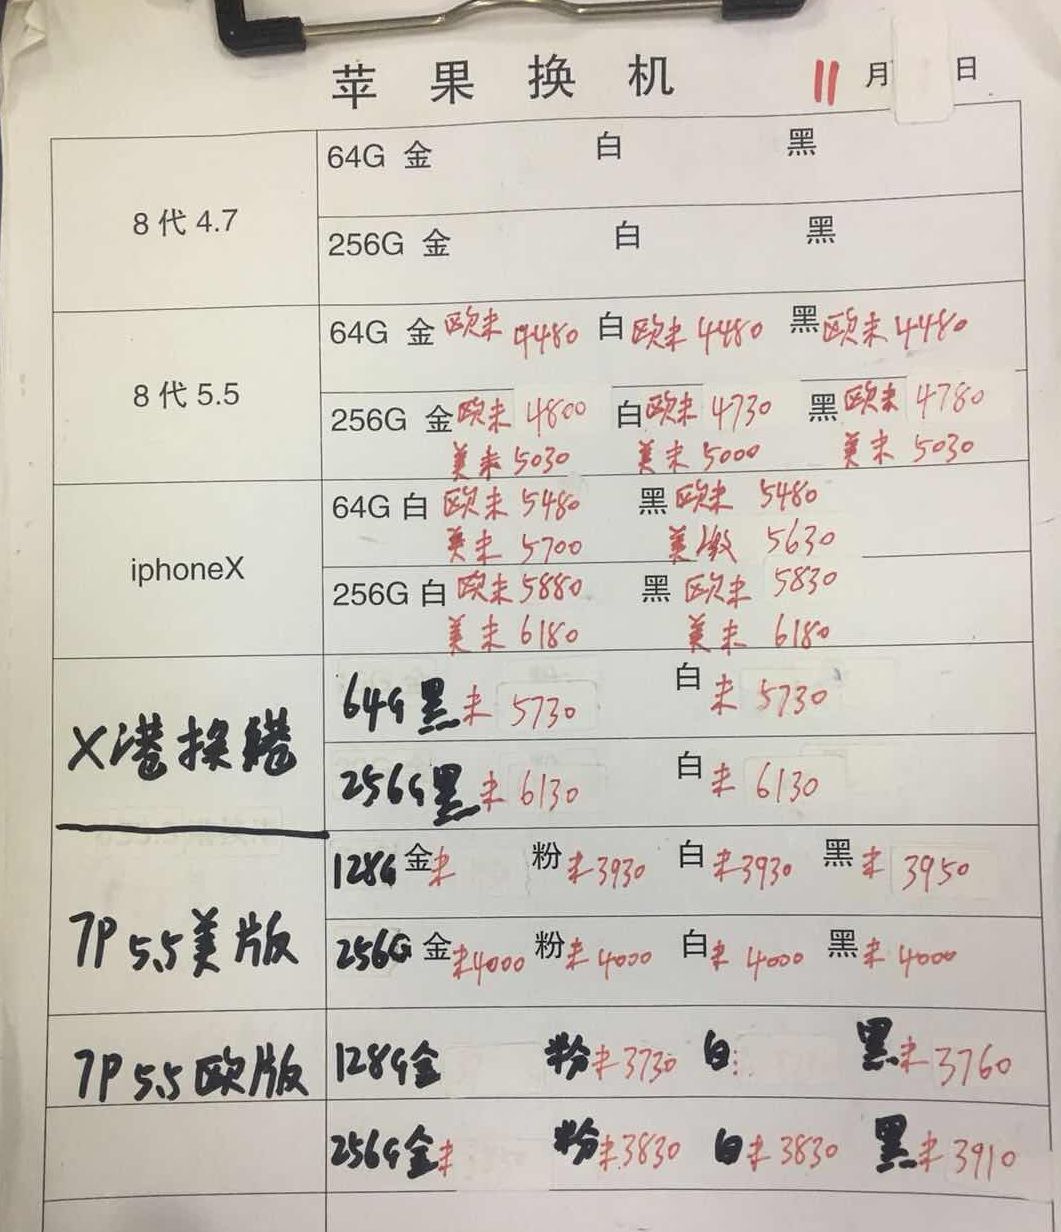 苹果换机 11月 日
8代4.7
64G 金 白 黑
256G 金 白 黑
8代5.5
64G 金 欧未 4480 白 欧未 4480 黑 欧未 4480
256G 金 欧未 4800 白 欧未 4730 黑 欧未 4780
美未 5030 美未 5000 美未 5030
iphoneX
64G 白 欧未 5480 黑 欧未 5480
美未 5700 美激 5630
256G 白 欧未 5880 黑 欧未 5830
美未 6180 美未 6180
X港换港
64G 黑 未 5730 白 未 5730
256G 黑 未 6130 白 未 6130
7P 5.5美版
128G 金 未 粉 未 3930 白 未 3930 黑 未 3950
256G 金 未 4000 粉 未 4000 白 未 4000 黑 未 4000
7P 5.5欧版
128G 金 粉 未 3730 白 黑 未 3760
256G 金 未 粉 未 3830 白 未 3830 黑 未 3910